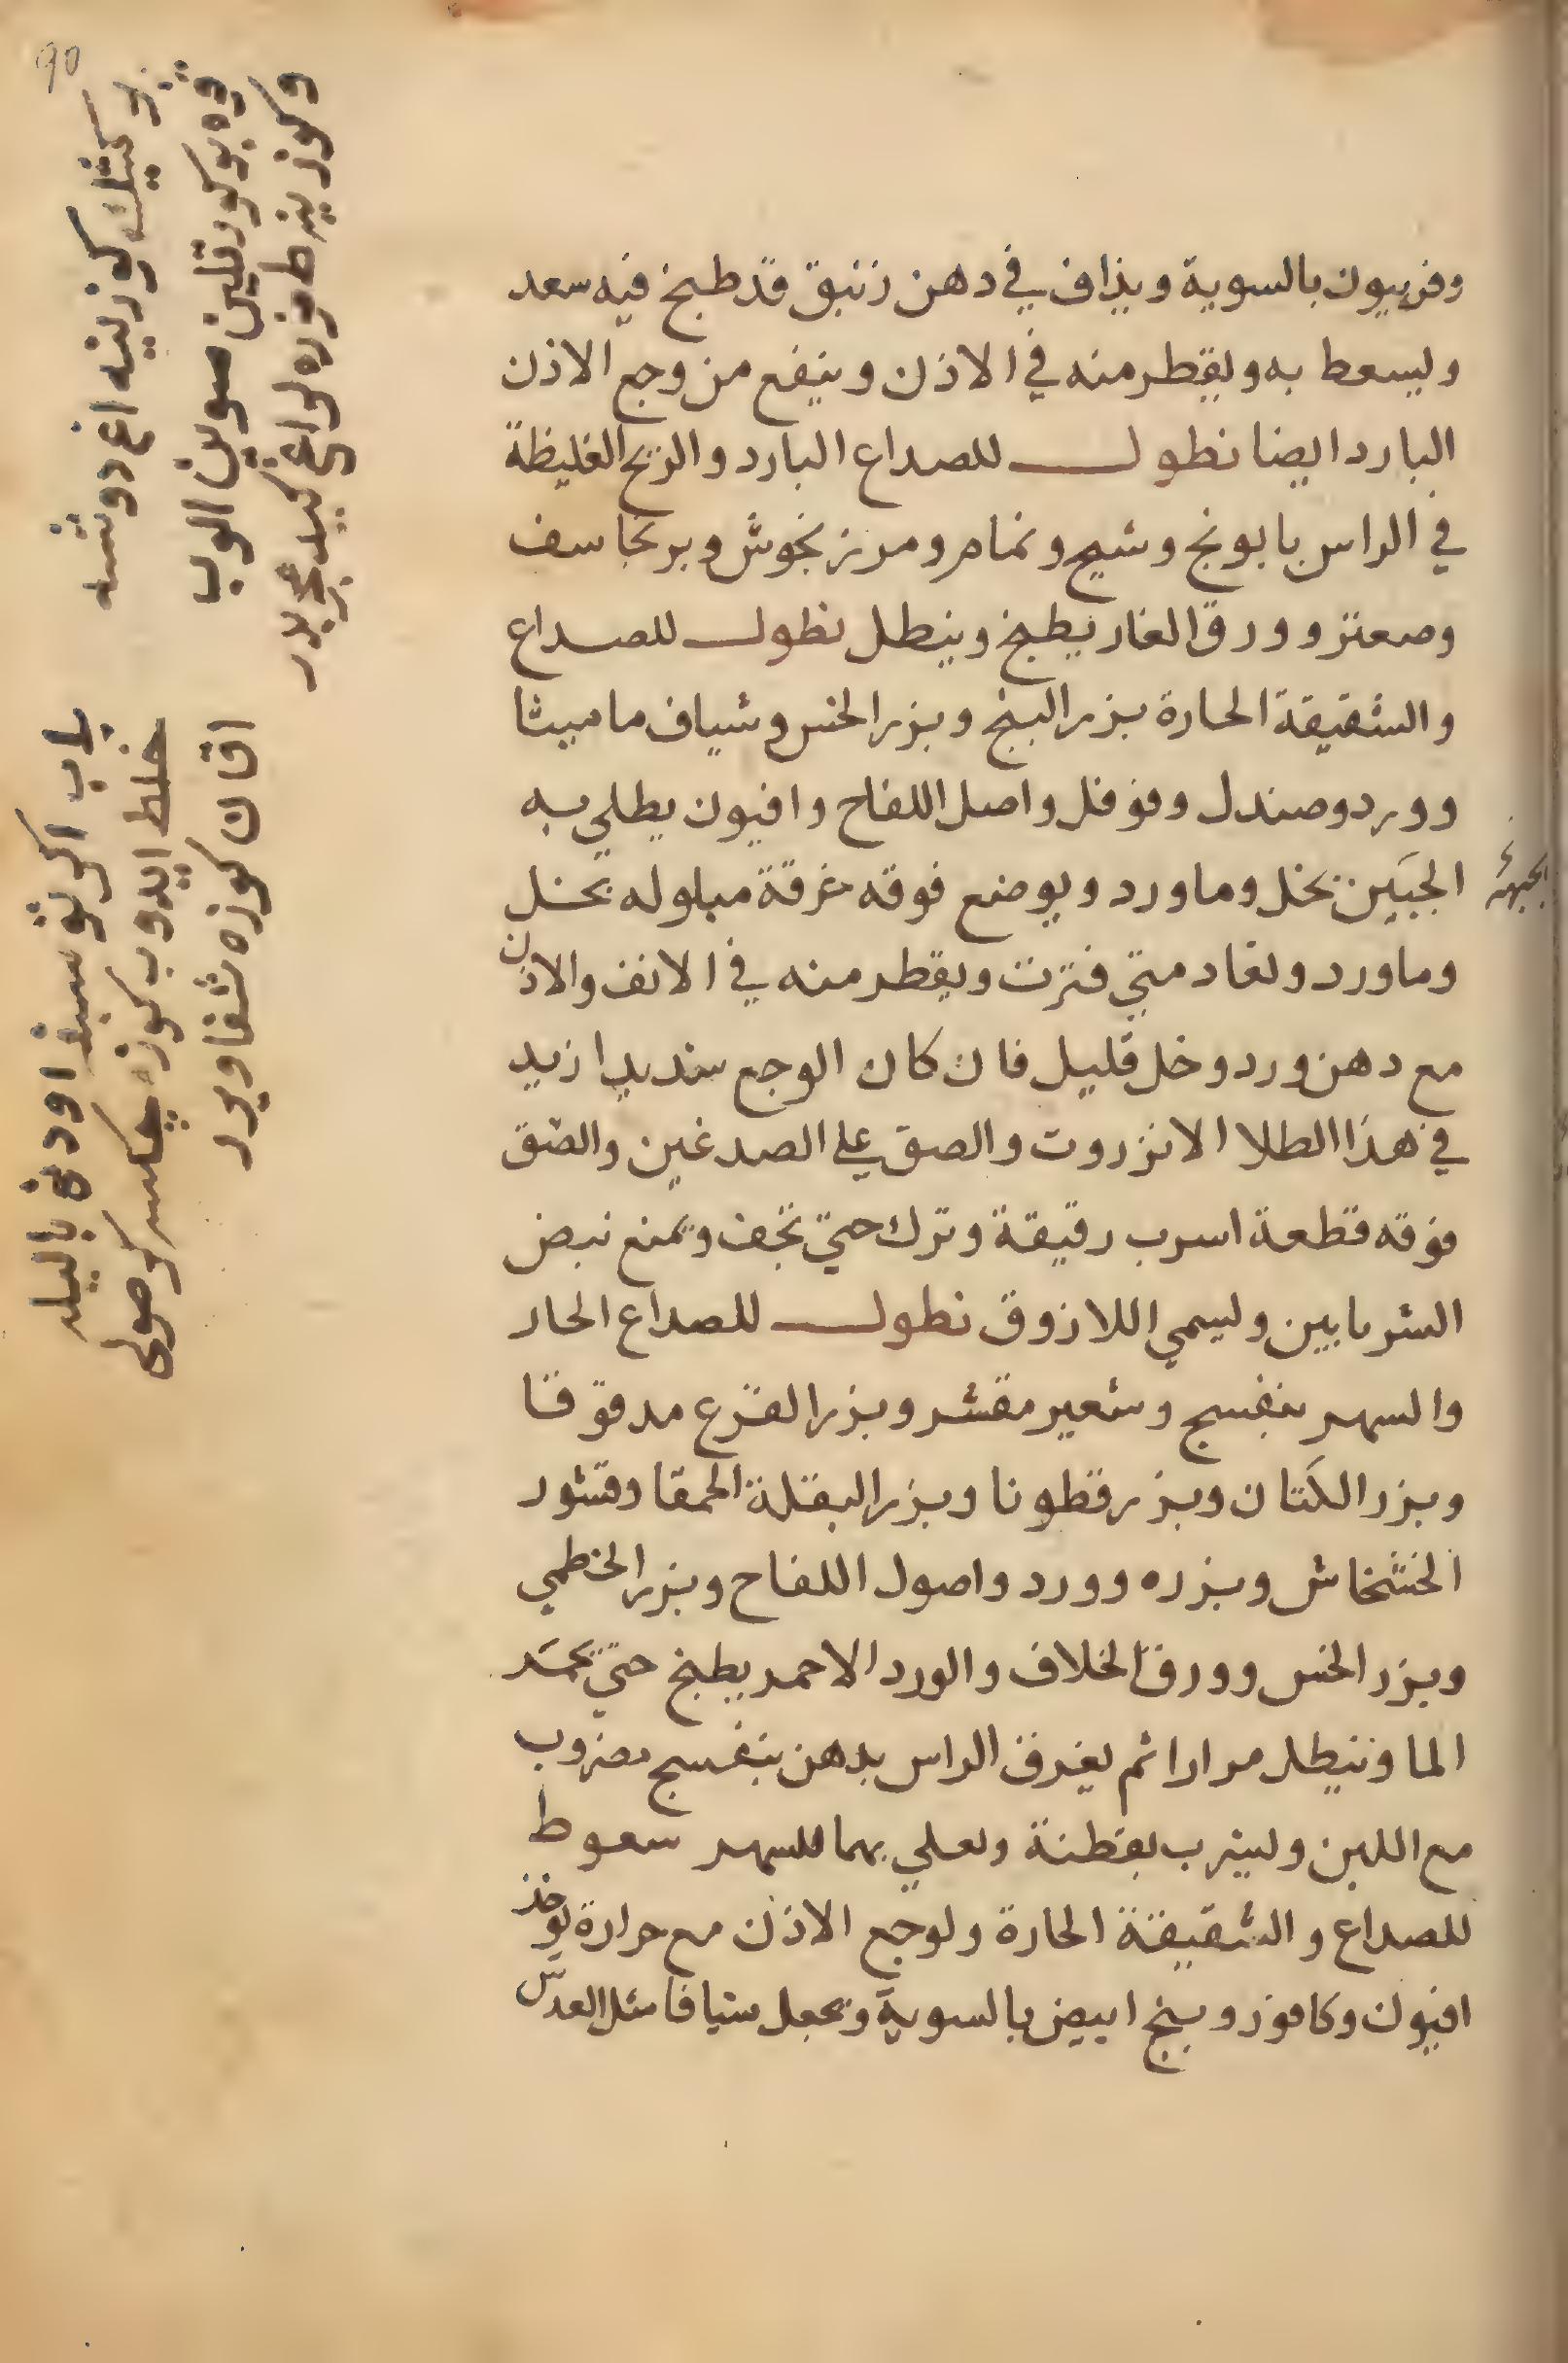 وفربيون بالسوية ويذاف في دهن زنبق قد طبخ فيه سعد
وليسعط به ويقطر منه في الاذن وينفع من وجع الاذن
البارد ايضا نطول للصداع البارد والريح الغليظة
في الراس بابونج وشيح ونمام ومرزنجوش وبرنجاسف
وصعتر وورق الغار يطبخ وينطل نطول للصداع
والشقيقة الحارة بزر البنج وبزر الخس وشياف ماميثا
وورد وصندل وفوفل واصل اللفاح وافيون يطلي به
الجبين بخل وماورد ويوضع فوقه خرقة مبلوله بخل
الجبهة
وماورد وتعاد متي فترت ويقطر منه في الانف والاذن
مع دهن ورد وخل قليل فان كان الوجع شديدا زيد
في هذا الطلا الانزروت والصق علي الصدغين والصق
فوقه قطعة اسرب رقيقة وترك حتي تجف ويمنع نبض
الشريانين وليسمي اللازوق نطول للصداع الحار
والسهر بنفسج وشعير مقشر وبزر القرع مدقوقا
وبزر الكتان وبزر قطونا وبزر البقلة الحمقا وقشور
الخشخاش وبزره وورد واصول اللفاح وبزر الخطمي
وبزر الخس وورق الخلاف والورد الاحمر يطبخ حتي يحمر
الما وينطل مرارا ثم يغرق الراس بدهن بنفسج مضروب
مع اللبن وليشرب بقطنة ويعلي بهما للسهر سعوط
للصداع والشقيقة الحارة ولوجع الاذن مع حرارة يوخذ
افيون وكافور وبنج ابيض بالسوية ويجعل شيافا مثل العدس
90
بر كشينك كوزينه اغ دوشسه
بوكورتلين صوين الوب
وكوزينه طمزه لر اغي كيدجريدر
باب اكر توسبغه اودني باليله
خلط ايدوب كوزه چكسه كر صولي
اقان كوزه شفا ويرر